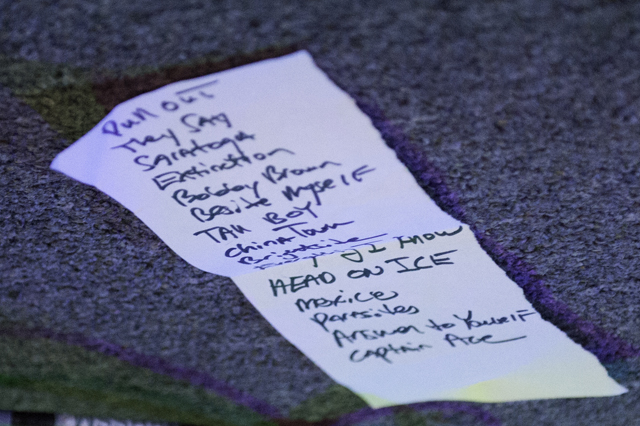 Pull Out
They Say
Saratoga
Extinction
Bobby Brown
Beside Myself
TAll BOY
China Town
Brightside
I Know
HEAD ON ICE
Mexico
Parasites
Answer to Yourself
Captain Ace